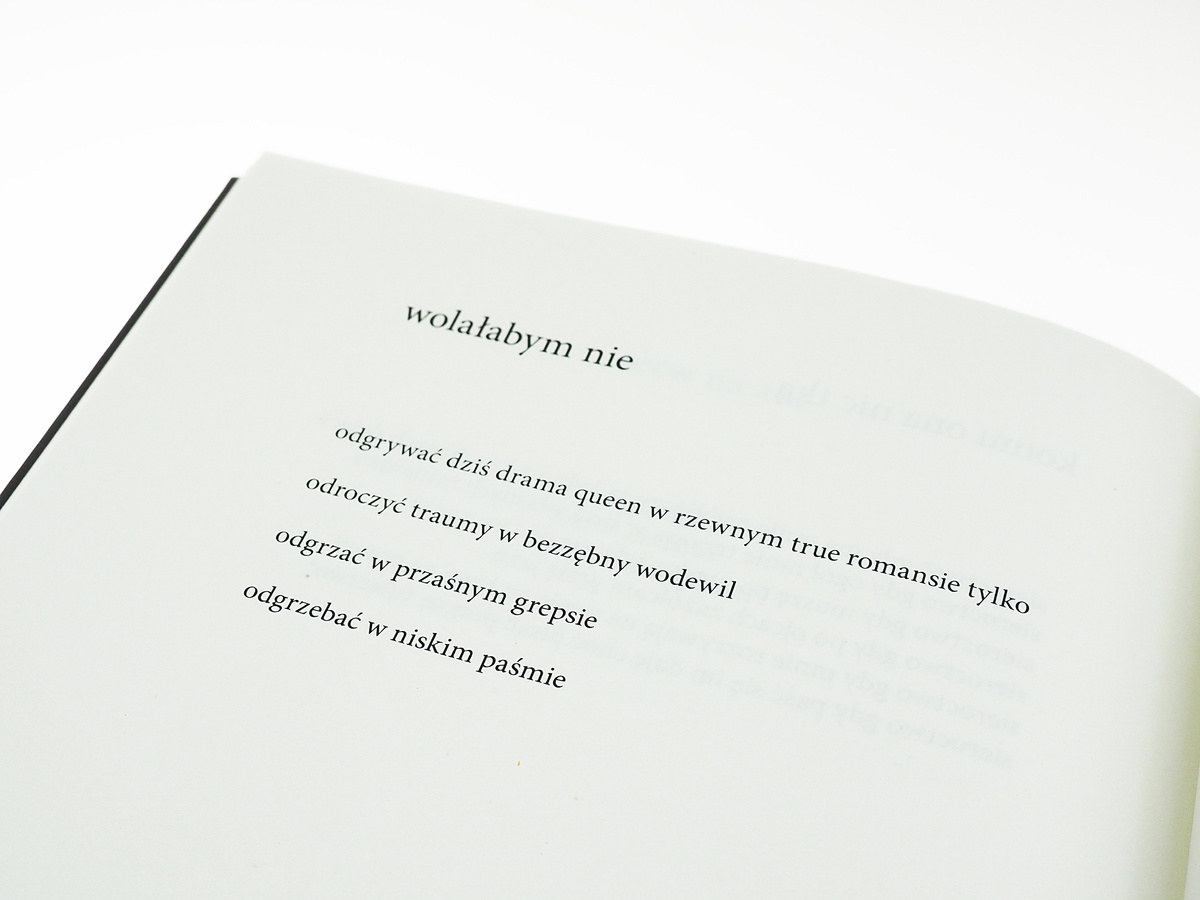 wolałabym nie
odgrywać dziś drama queen w rzewnym true romansie tylko
odroczyć traumy w bezzębny wodewil
odgrzać w przaśnym grepsie
odgrzebać w niskim paśmie